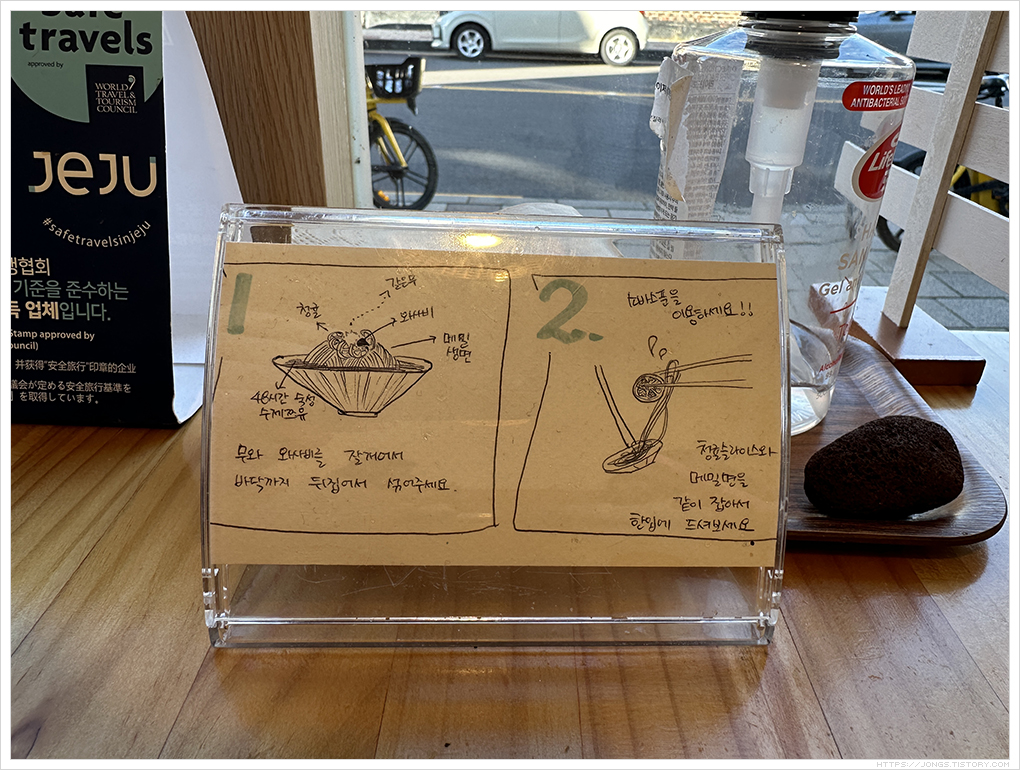 safe
travels
approved by
WORLD
TRAVEL &
TOURISM
COUNCIL
JEJU
#safetravelsinjeju
행협회
기준을 준수하는
득 업체입니다.
Stamp approved by
ouncil)
并获得"安全旅行"印章的企业
議会が定める安全旅行基準を
を取得しています。
1
갈은무
청귤
와사비
메밀
생면
48시간 숙성
수제쯔유
무와 와사비를 잘게어서
바닥까지 뒤집어서 섞어주세요
2.
타바스푼을
이용하세요!!
청귤슬라이스와
메밀면을
같이 잡아서
한입에 드셔보세요
WORLD'S LEADI
ANTIBACTERIAL S
Life
SAN
Gel a
HTTPS://JONGS.TISTORY.COM